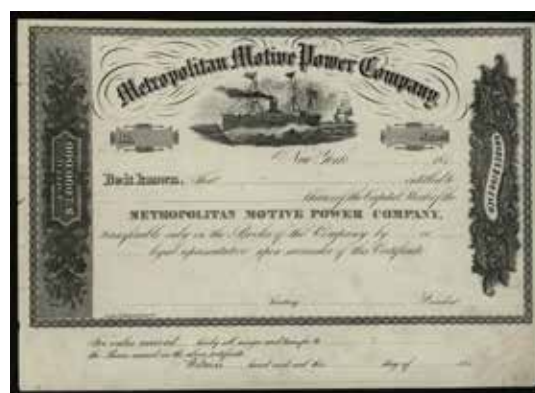 Metropolitan Motive Power Company.
New York 18
Be it known, that entitled to
Shares of the Capital Stock of the
METROPOLITAN MOTIVE POWER COMPANY,
transferable only on the Books of the Company by or
legal representative upon surrender of this Certificate
President
$2,000,000
For value received hereby sell, assign and transfer to
the Shares named in the above certificate
Witness hand and seal this day of 18